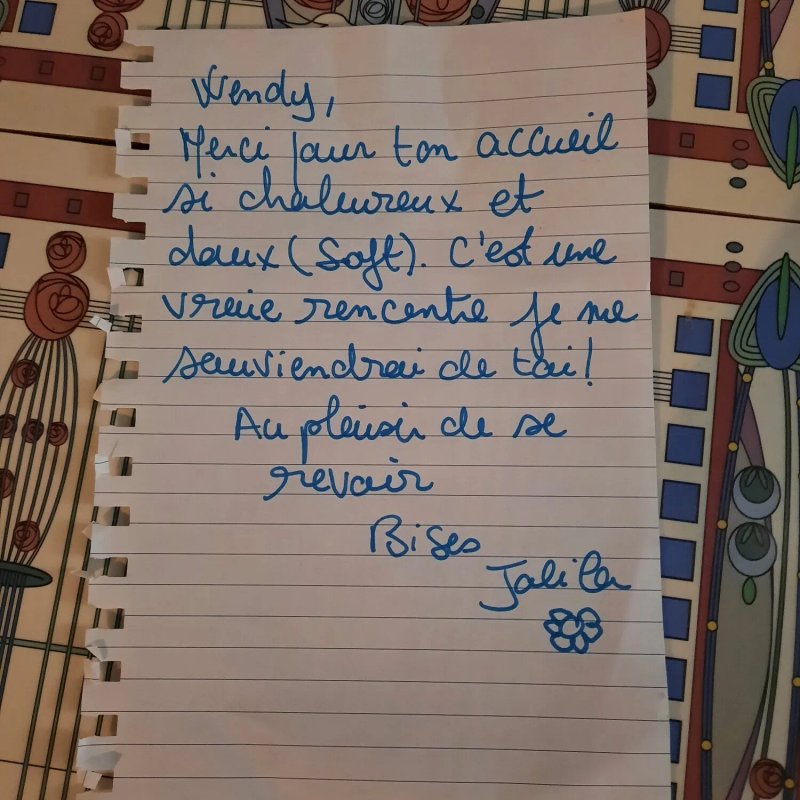 Wendy,
Merci pour ton accueil
si chaleureux et
doux (Soft). C'est une
vraie rencontre je me
souviendrai de toi!
Au plaisir de se
revoir
Bises
Jalila